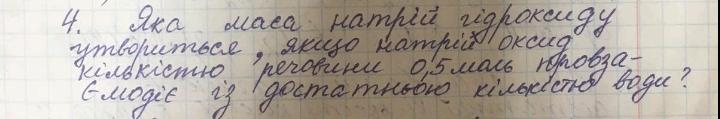 4. Яка маса натрій гідроксиду
утвориться, якщо натрій оксид
кількістю речовини 0,5 моль провза-
ємодіє із достатньою кількістю води?